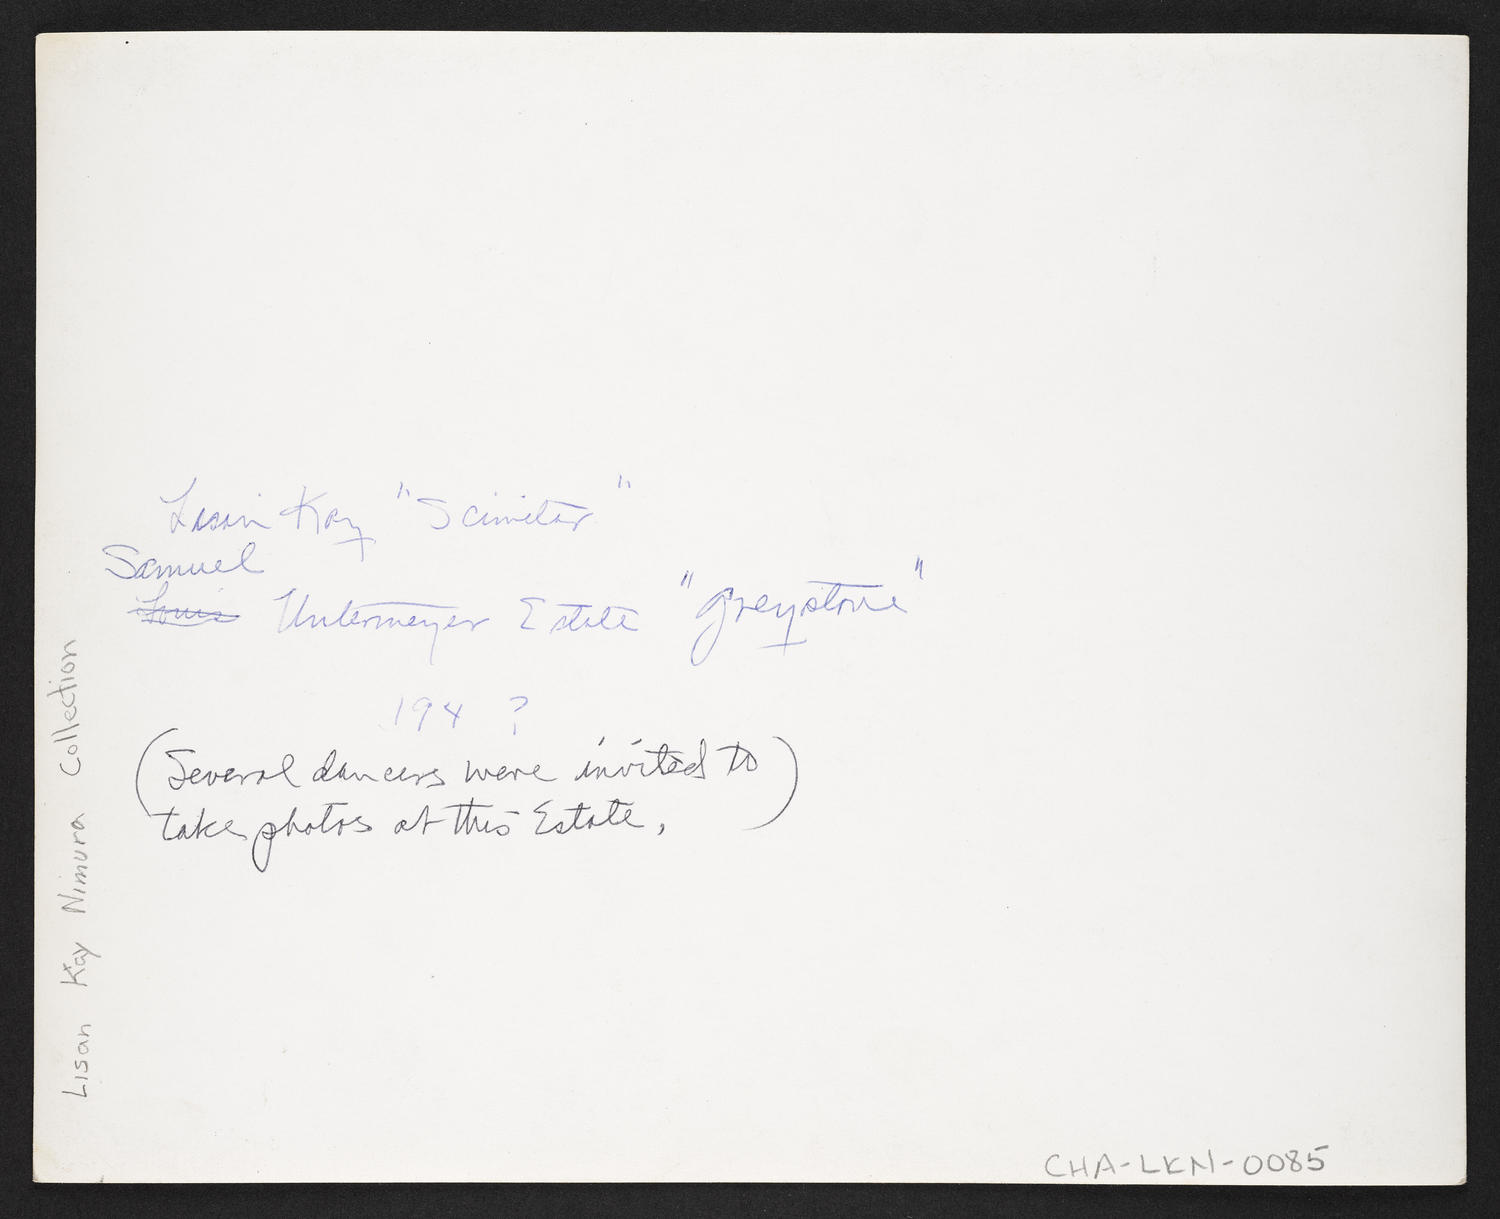 Lisan Kay "Scimitar"
Samuel
Louis Untermeyer Estate "Greystone"
194 ?
(Several dancers were invited to)
take photos at this Estate.
Lisan Kay Nimura Collection
CHA-LKN-0085